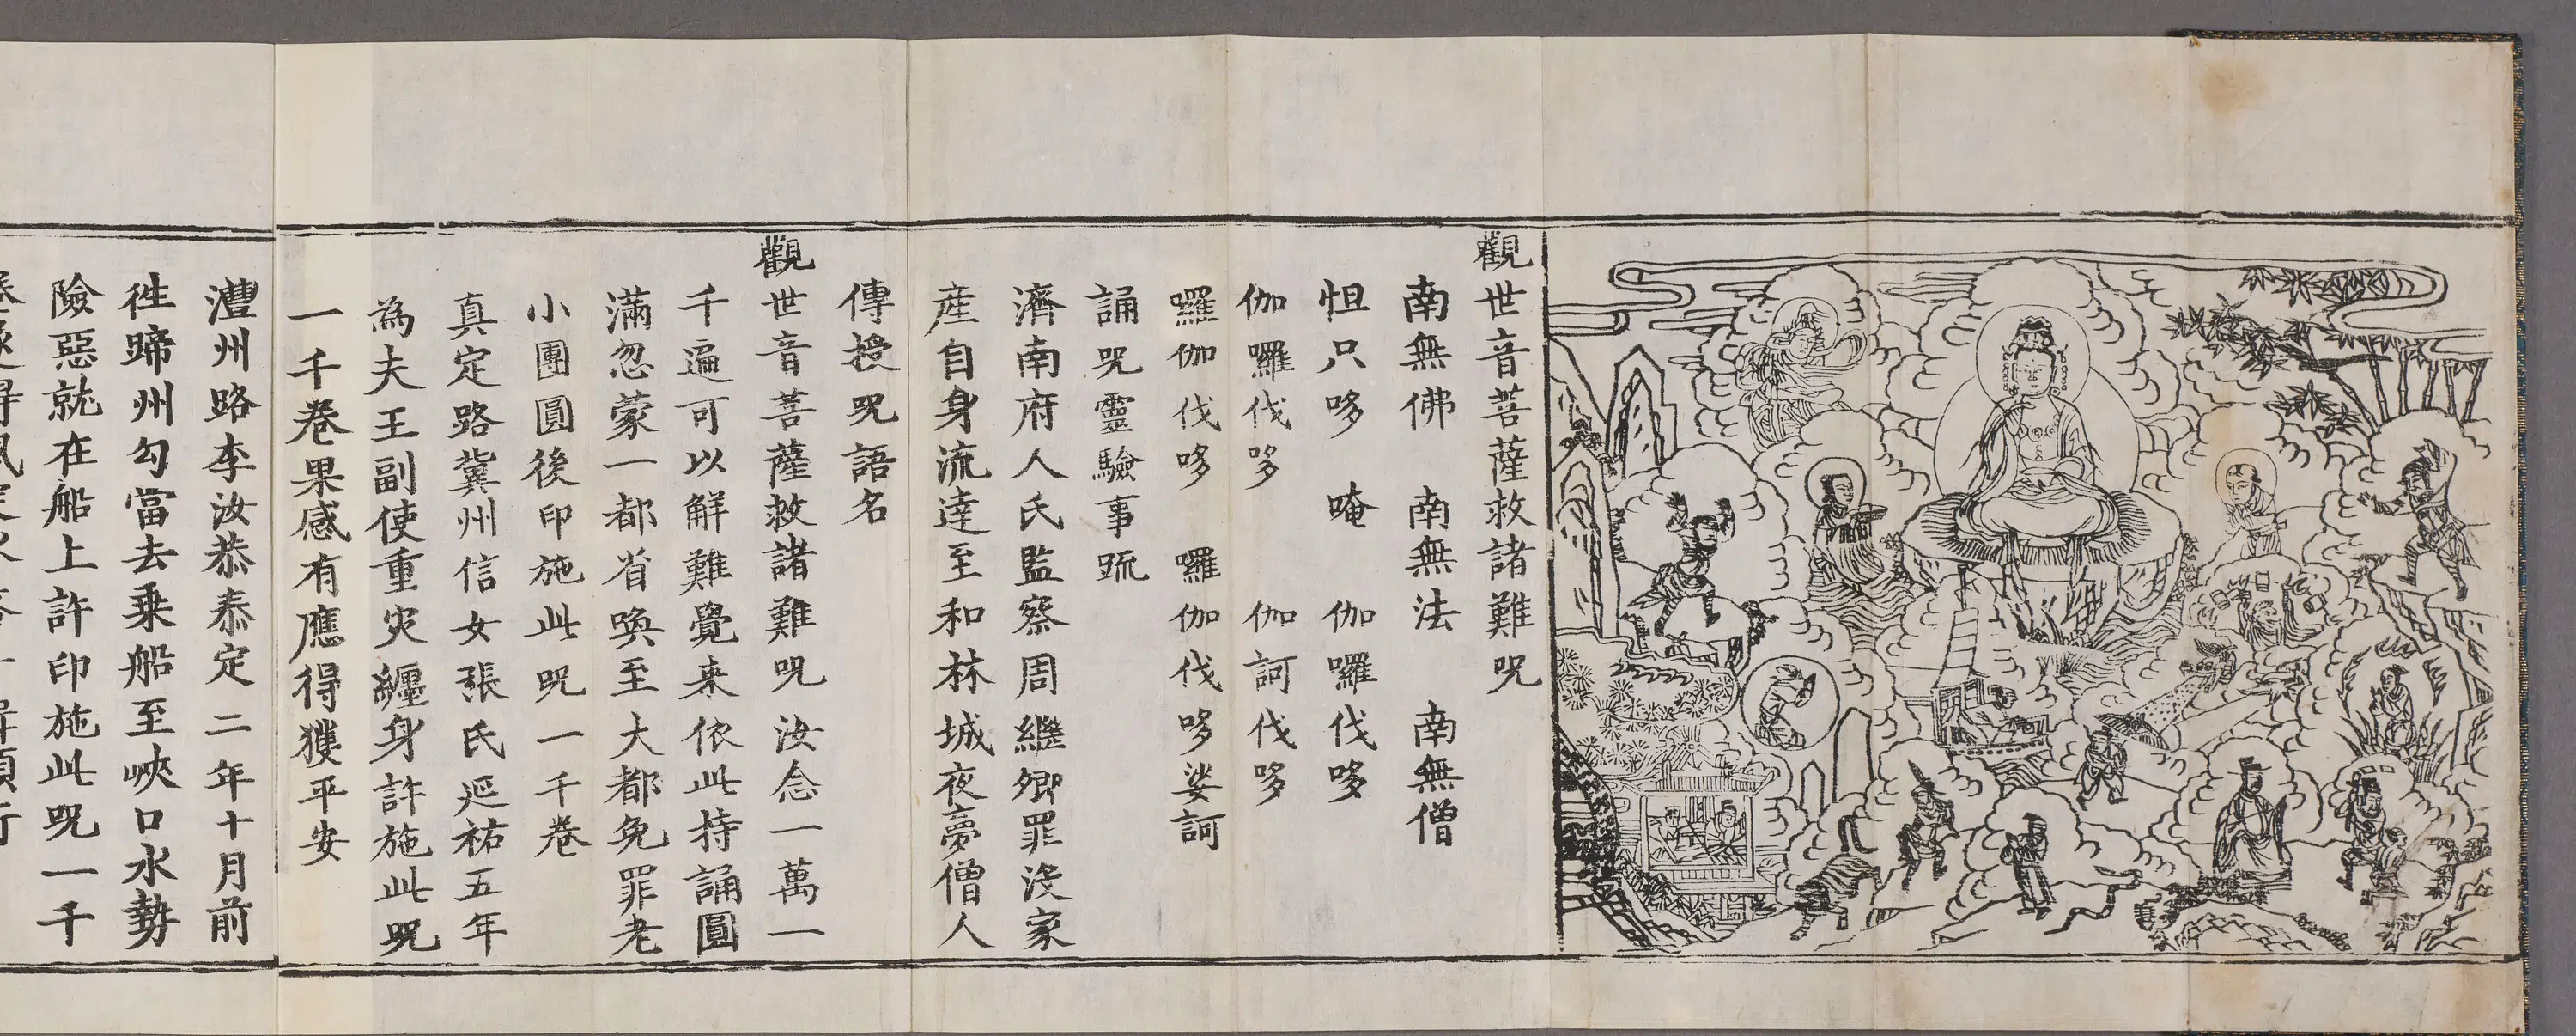 觀世音菩薩救諸難呪
南無佛 南無法 南無僧
怛只哆 唵 伽囉伐哆
伽囉伐哆 伽訶伐哆
囉伽伐哆 囉伽伐哆娑訶
誦呪靈驗事䟽
濟南府人氏監察周繼卿罪沒家
産自身流逹至和林城夜夢僧人
傳授呪語名
觀世音菩薩救諸難呪汝念一萬一
千遍可以解難覺来依此持誦圓
滿忽蒙一都省喚至大都免罪老
小團圓後印施此呪一千卷
真定路冀州信女張氏延祐五年
為夫王副使重灾纏身許施此呪
一千卷果感有應得獲平安
澧州路李汝恭泰定二年十月前
徃蹄州勾當去乗船至峽口水勢
險惡就在船上許印施此呪一千